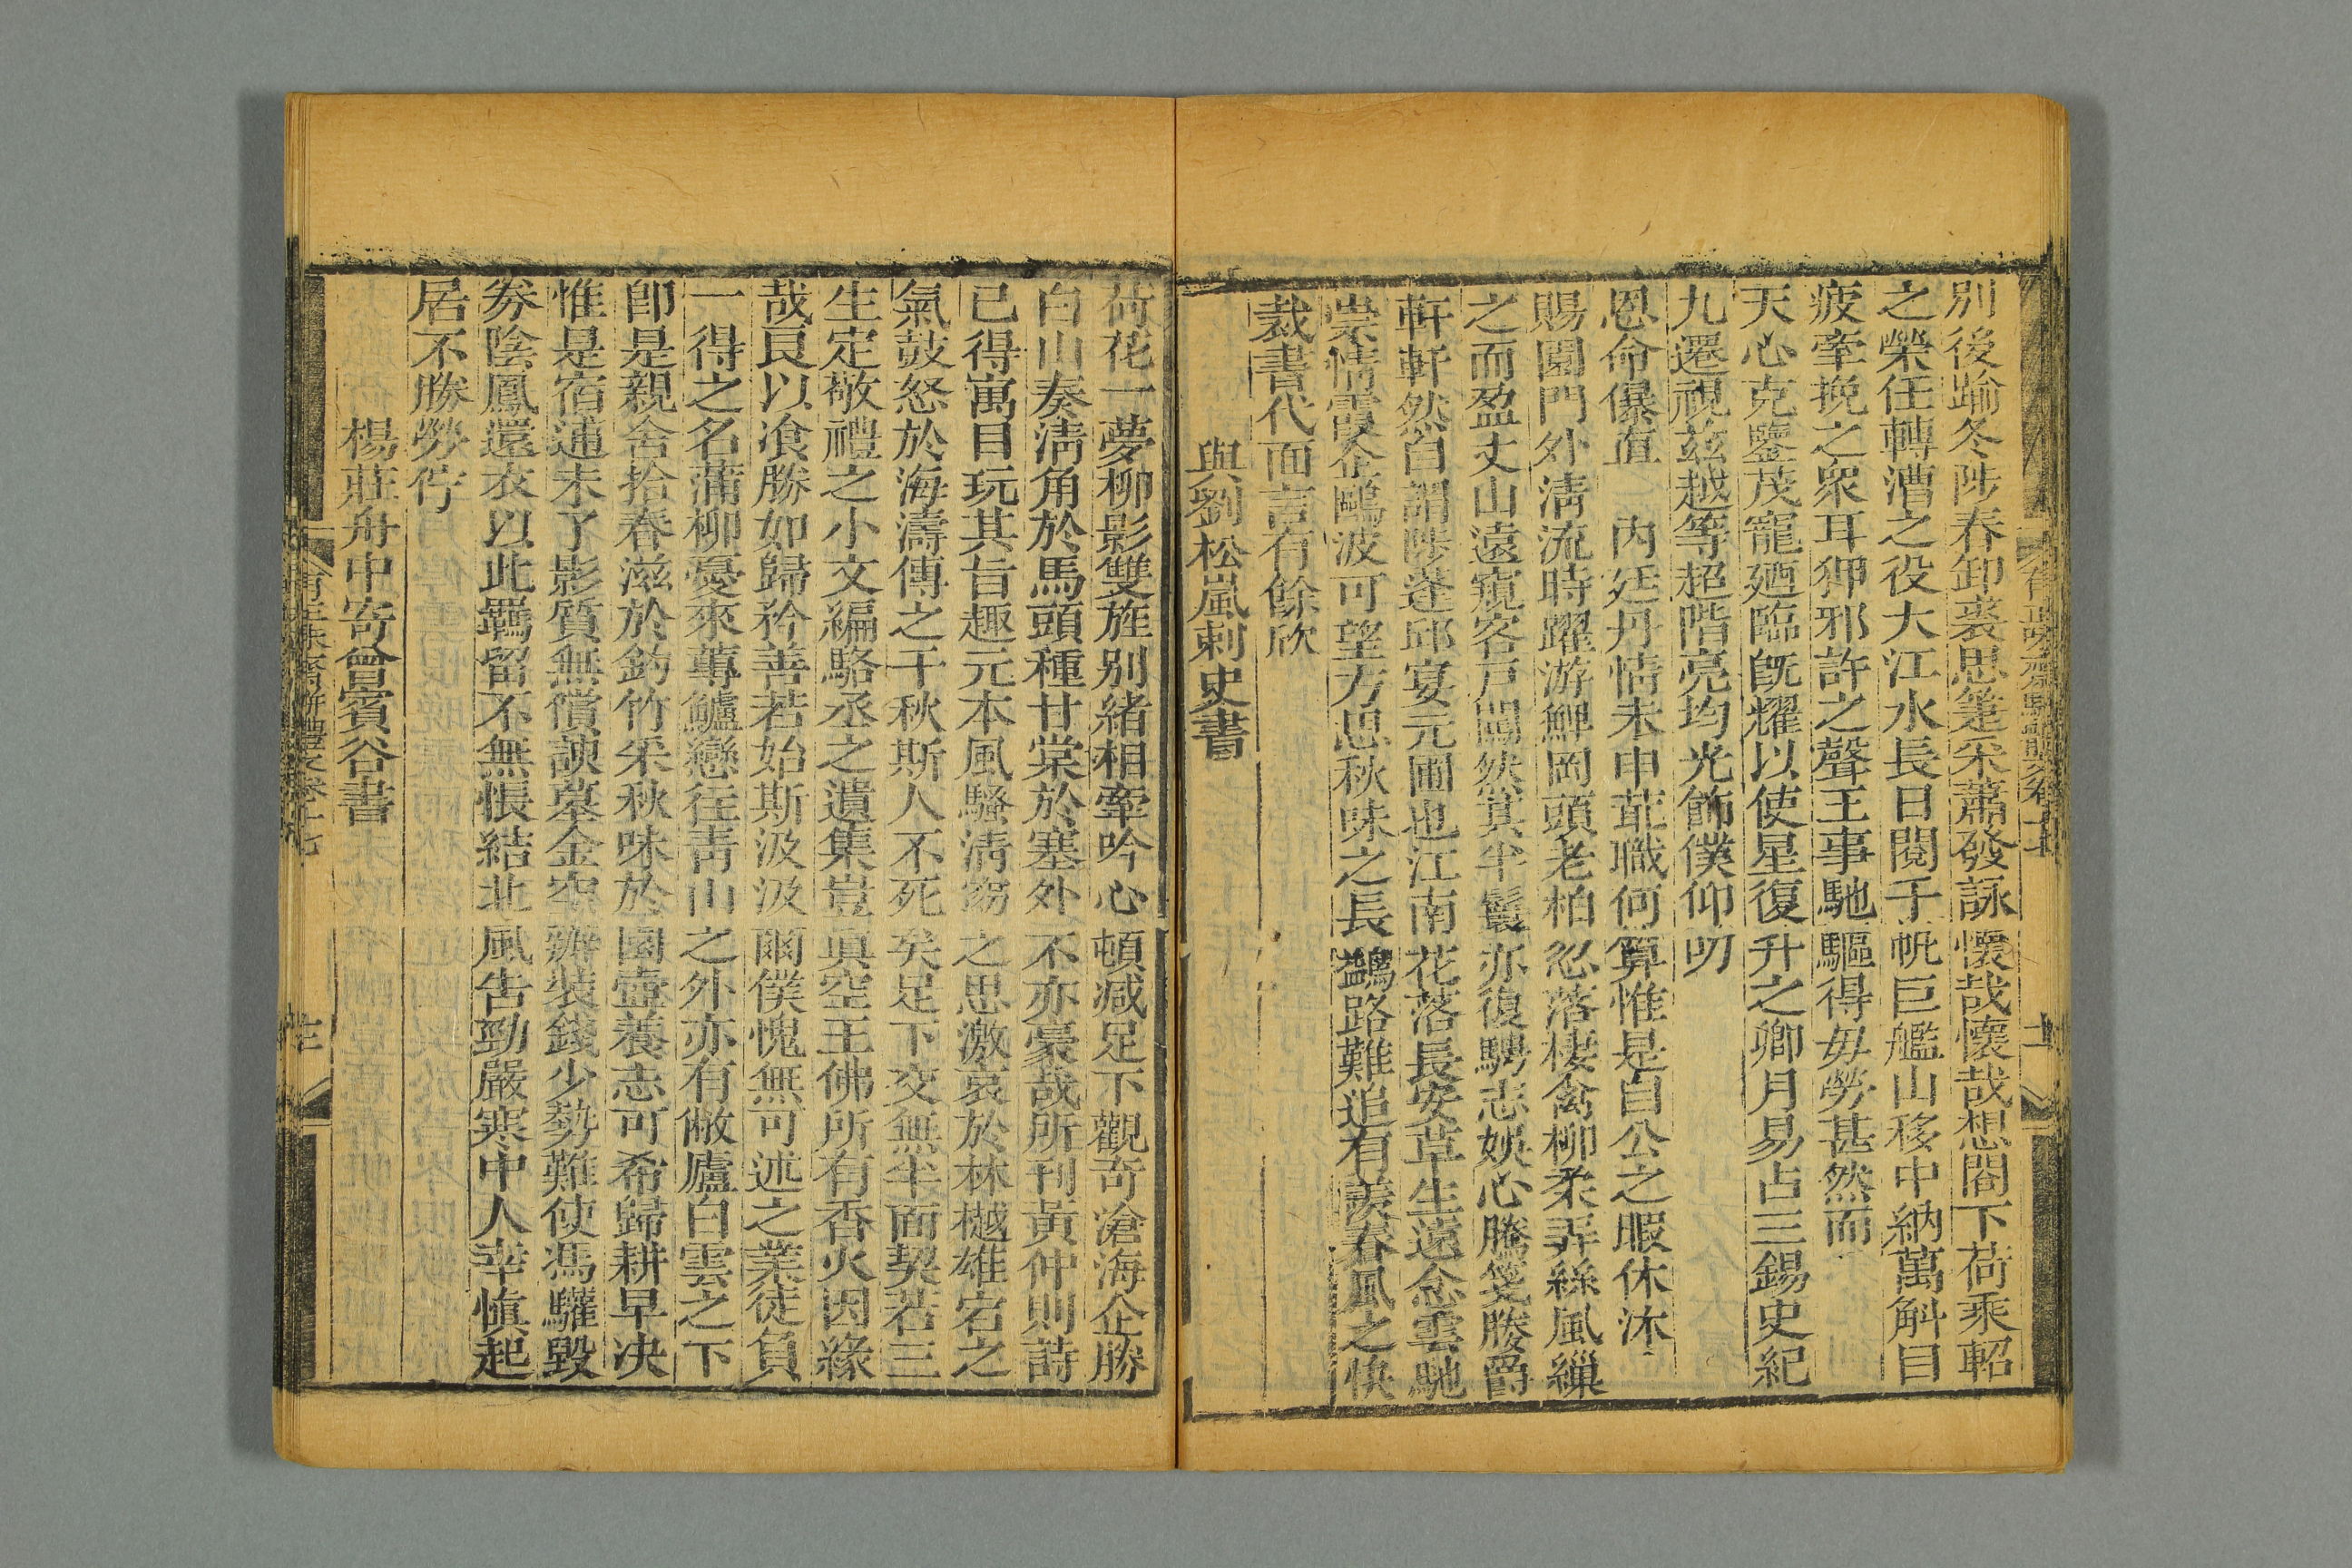 別後踰冬陟春卸裘思箑采蕭發詠懷哉懷哉想閤下荷乘軺
之榮任轉漕之役大江水長日閱千帆巨艦山移中納萬斛目
疲牽挽之衆耳狎邪許之聲王事馳驅得毋勞甚然而
天心克鑒茂寵廼臨旣耀以使星復升之卿月易占三錫史紀
九遷視茲越等超階亮均光飾僕仰叨
恩命儤直內廷丹情未申茸職何算惟是自公之暇休沐
賜園門外淸流時躍游鯉岡頭老柏忽落棲禽柳柔弄絲風纖
之而盈丈山遠窺客戶闢然其半鬟亦復騁志娛心騰箋勝爵
軒軒然自謂陟蓬邱宴元圃也江南花落長安草生遠念雲馳
崇情霞企鷗波可望方思秋味之長鷁路難追有羨春風之快
裁書代面言有餘欣
與劉松嵐刺史書
荷花一夢柳影雙旌别緒相牽吟心頓减足下觀奇滄海企勝
白山奏淸角於馬頭種甘棠於塞外不亦豪哉所刊黃仲則詩
已得寓目玩其旨趣元本風騷淸窈之思激哀於林樾雄宕之
氣鼓怒於海濤傳之千秋斯人不死矣足下交無半面契若三
生定敬禮之小文編駱丞之遺集豈眞空王佛所有香火因緣
哉良以飡勝如歸矜善若始斯汲汲爾僕愧無可述之業徒負
一得之名蒲柳憂來蓴鱸戀往靑山之外亦有敝廬白雲之下
卽是親舍拾春滋於釣竹采秋味於園壺養志可希歸耕早決
惟是宿逋未了影質無償諛墓金空辦裝錢少勢難使馮驩毀
劵陰鳳還衣以此羈留不無悵結北風吿勁嚴寒中人幸愼起
居不勝勞佇
楊莊舟中寄曾賓谷書